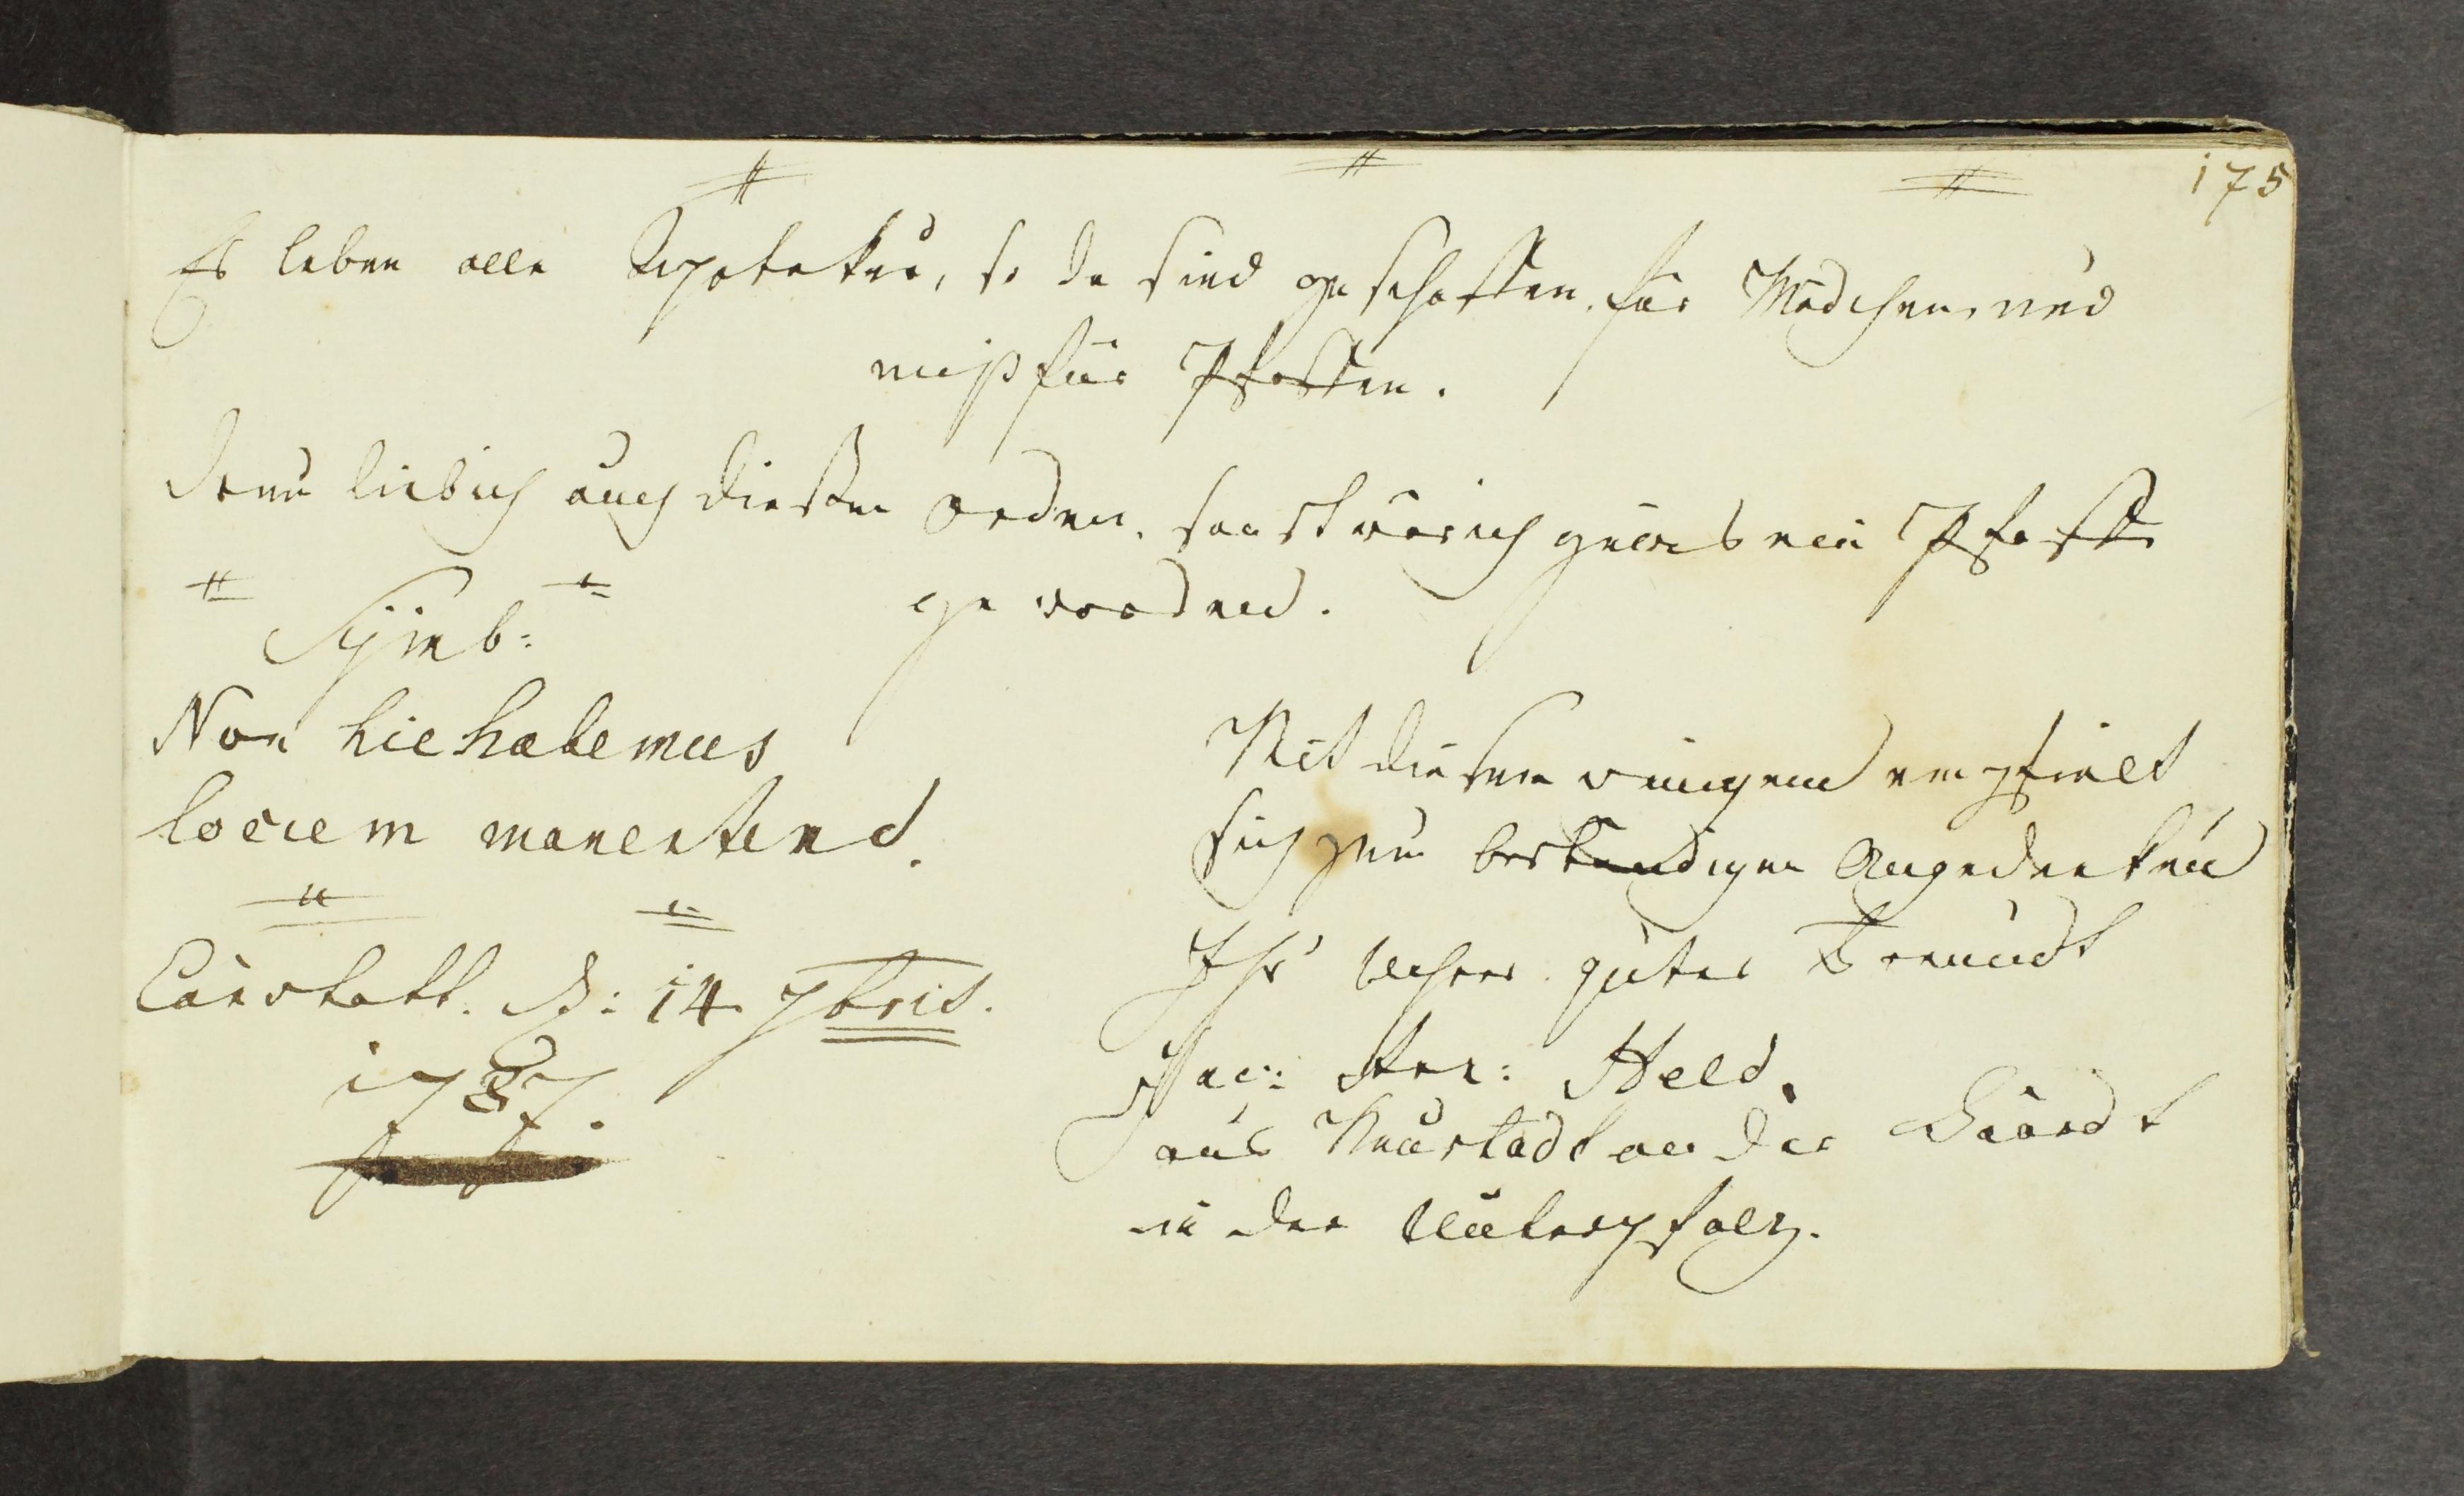 175
Es leben alle Apoteker, so da sind geschaffen für Mädchen, und
nicht für Pfaffen.
denn lieb ich auch diesen Orden, sonst wär ich gewis ein Pfaff
geworden.
Sÿmb:
Non hic habemus
locum manentend.
Canstatt. d: 14 7bris.
1787.
Mit diesem wenigen empfielt
sich zum bestendigen Angedenken
Ihr wahrer guter Freundt
Held.
aus Neustadt an der Haardt
in der Unterpfalz.